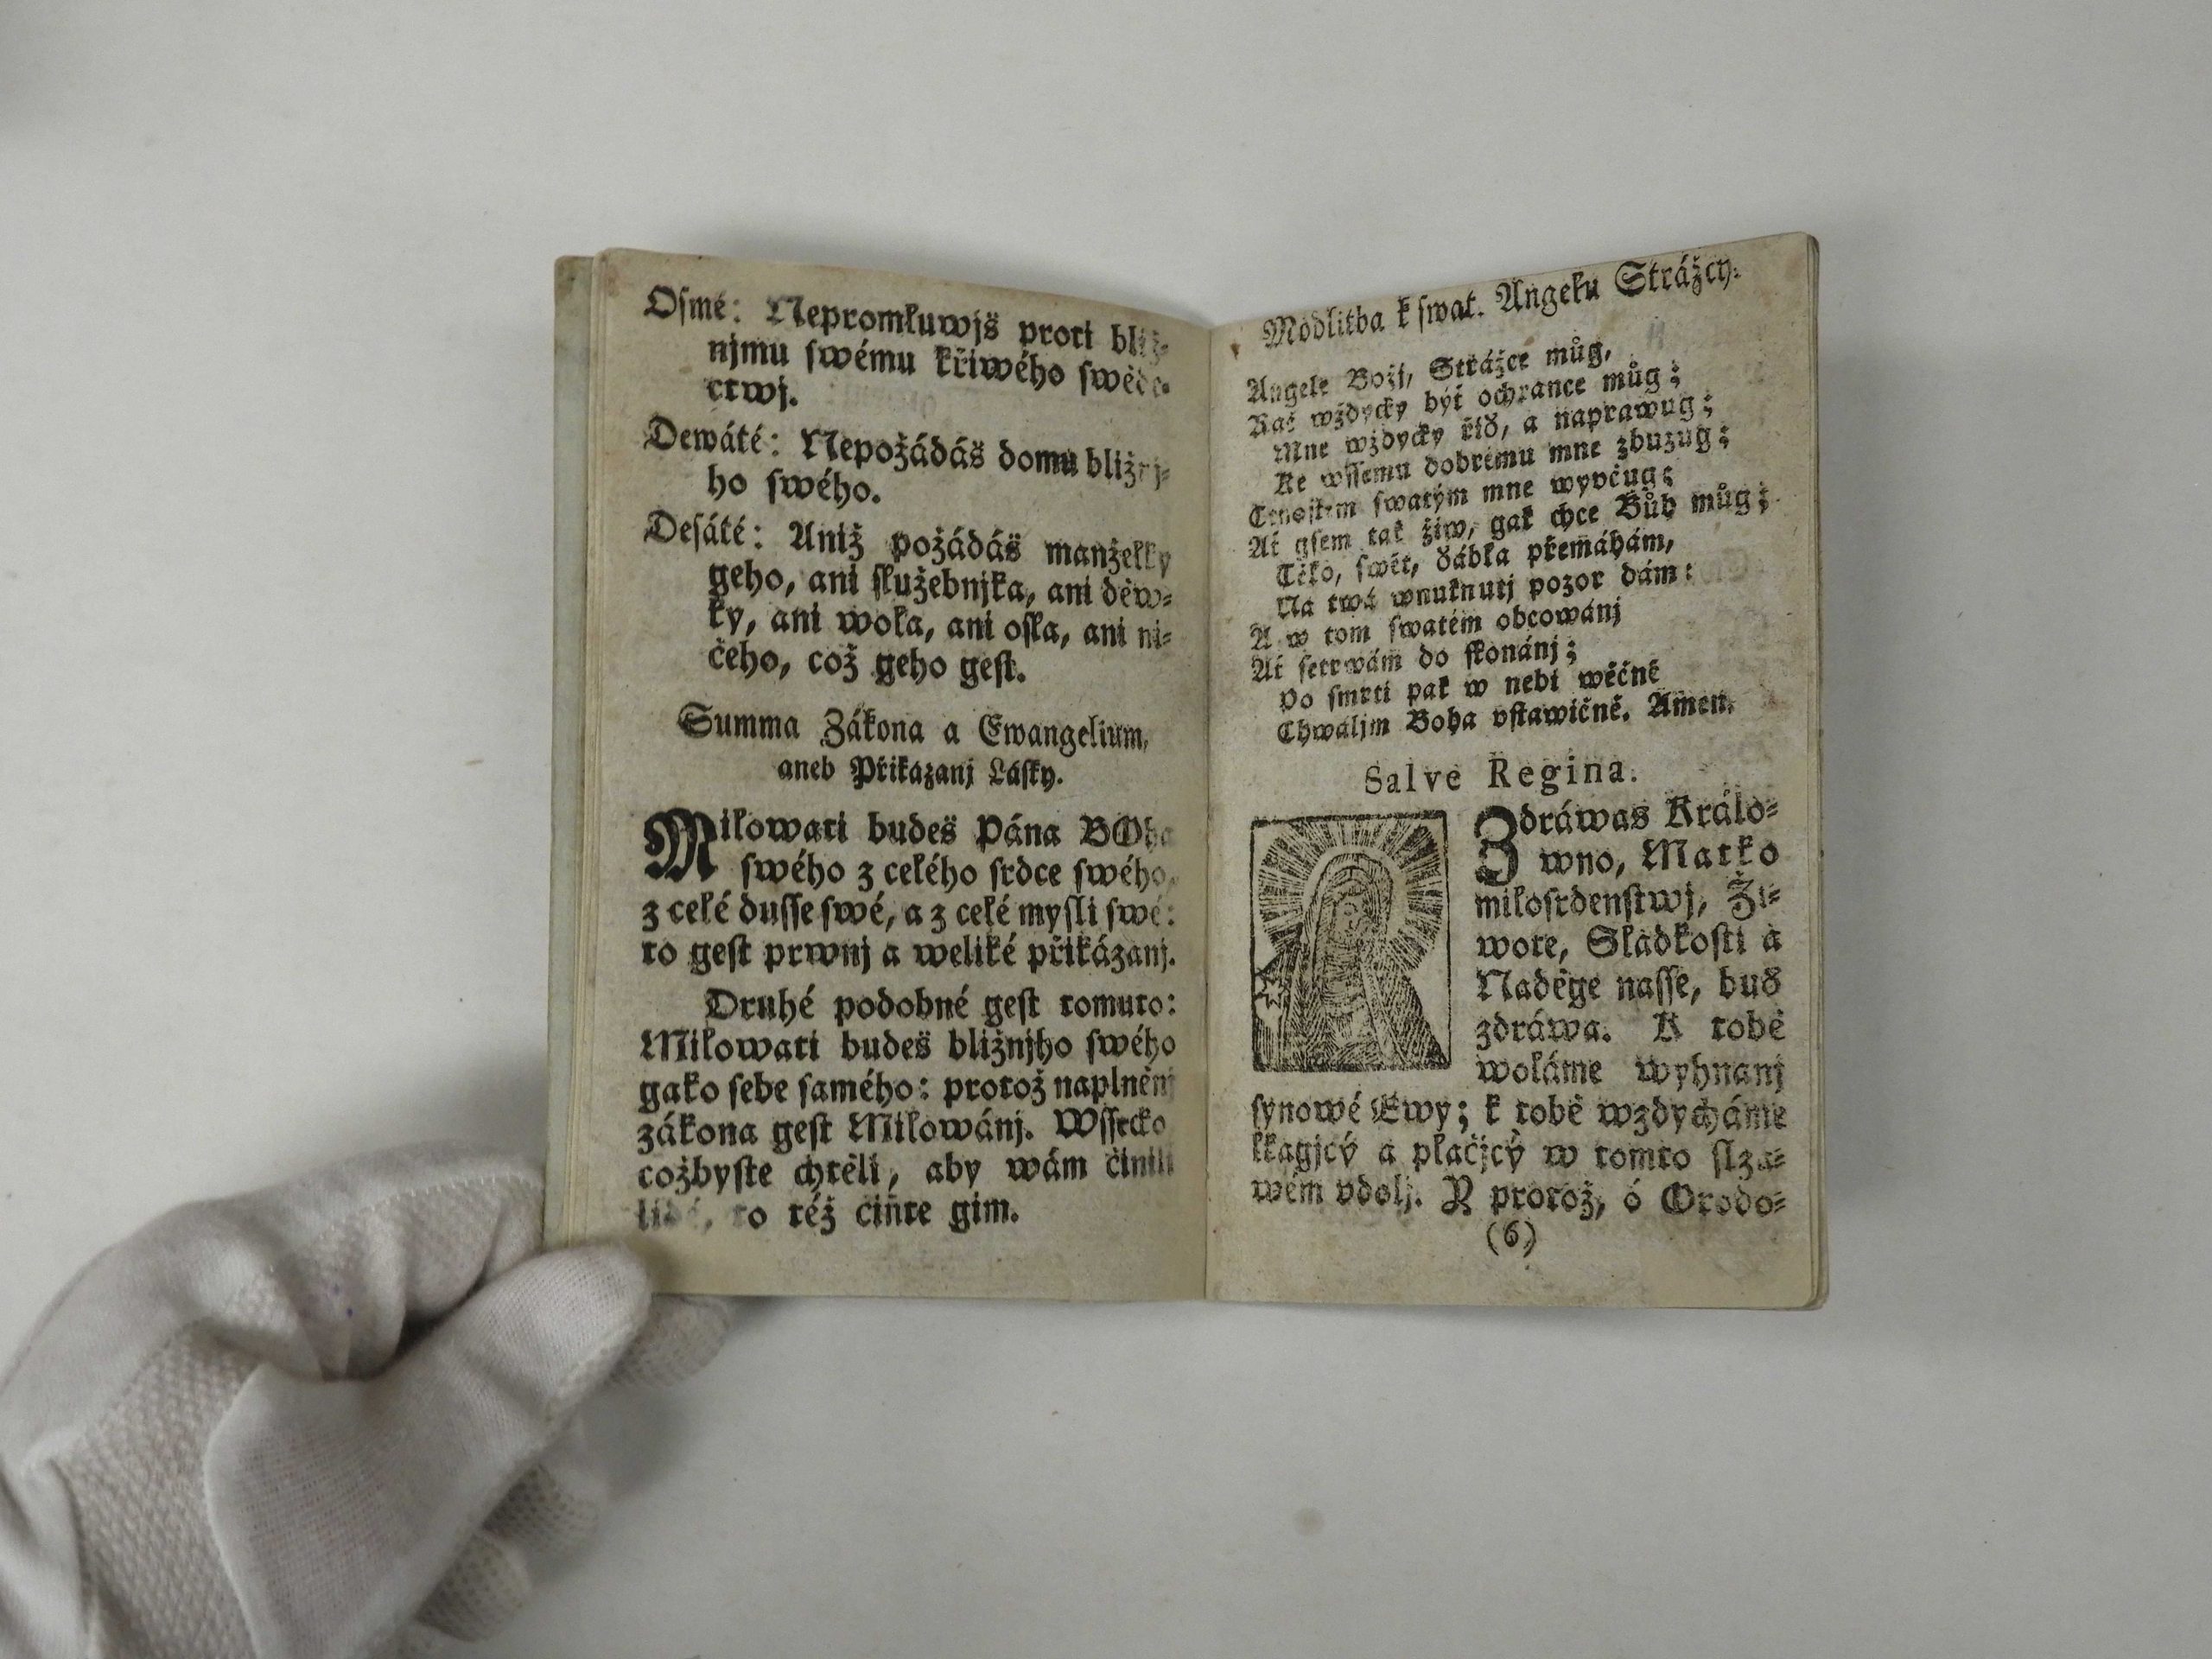 Osmé: Nepromluwjš proti bliž-
njmu swému křiwého swěde-
ctwj.
Dewáté: Nepožádáš domu bližnj-
ho swého.
Desáté: Aniž požádáš manželky
geho, ani služebnjka, ani děw-
ky, ani wola, ani osla, ani ni-
čeho, což geho gest.
Summa Zákona a Ewangelium,
aneb Přikázanj Lásky.
Milowati budeš Pána BOha
swého z celého srdce swého,
z celé dusse swé, a z celé mysli swé:
to gest prwnj a weliké přikázanj.
Druhé podobné gest tomuto:
Milowati budeš bližnjho swého
gako sebe samého: protož naplněnj
zákona gest Milowánj. Wssecko
cožbyste chtěli, aby wám činili
lidé, to též čiňte gim.
Modlitba k swat. Angelu Strážcy.
Angele Boži, Strážce můg,
Rač wždycky být ochrance můg;
Mne wždycky řiď, a naprawug;
Ke wssemu dobrému mne zbuzug;
Ctnostem swatým mne wyvčug;
Ať gsem tak žiw, gak chce Bůh můg;
Tělo, swět, ďábla přemáhám,
Na twá wnuknutj pozor dám:
A w tom swatém obcowánj
Ať setrwám do skonánj;
Po smrti pak w nebi wěčně
Chwáljm Boha vstawičně. Amen.
Salve Regina.
Zdráwas Králo-
wno, Matko
milosrdenstwj, Ži-
wote, Sladkosti a
Naděge nasse, buď
zdráwa. K tobě
woláme wyhnanj
synowé Ewy; k tobě wzdycháme
lkagjcý a plačjcý w tomto slza-
wém vdolj. N protož, ó Orodo-
(6)